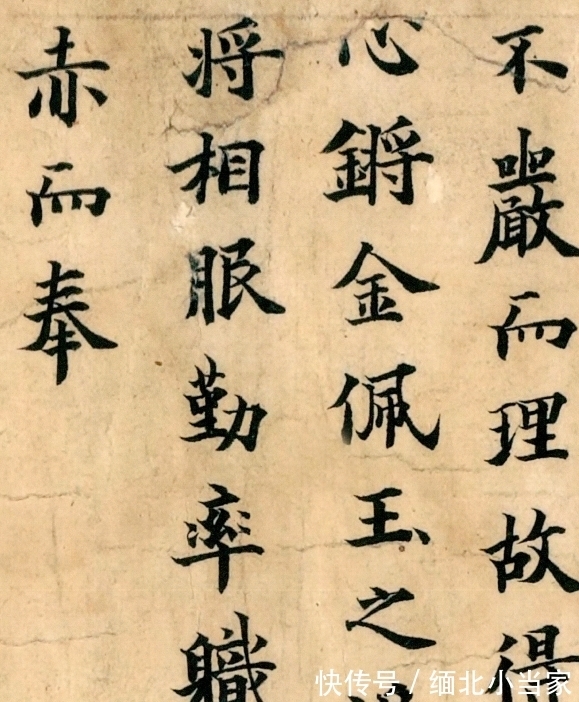 不嚴而理故得
心鏘金佩玉之
将相服勤率職
赤而奉
快传号 / 缅北小当家